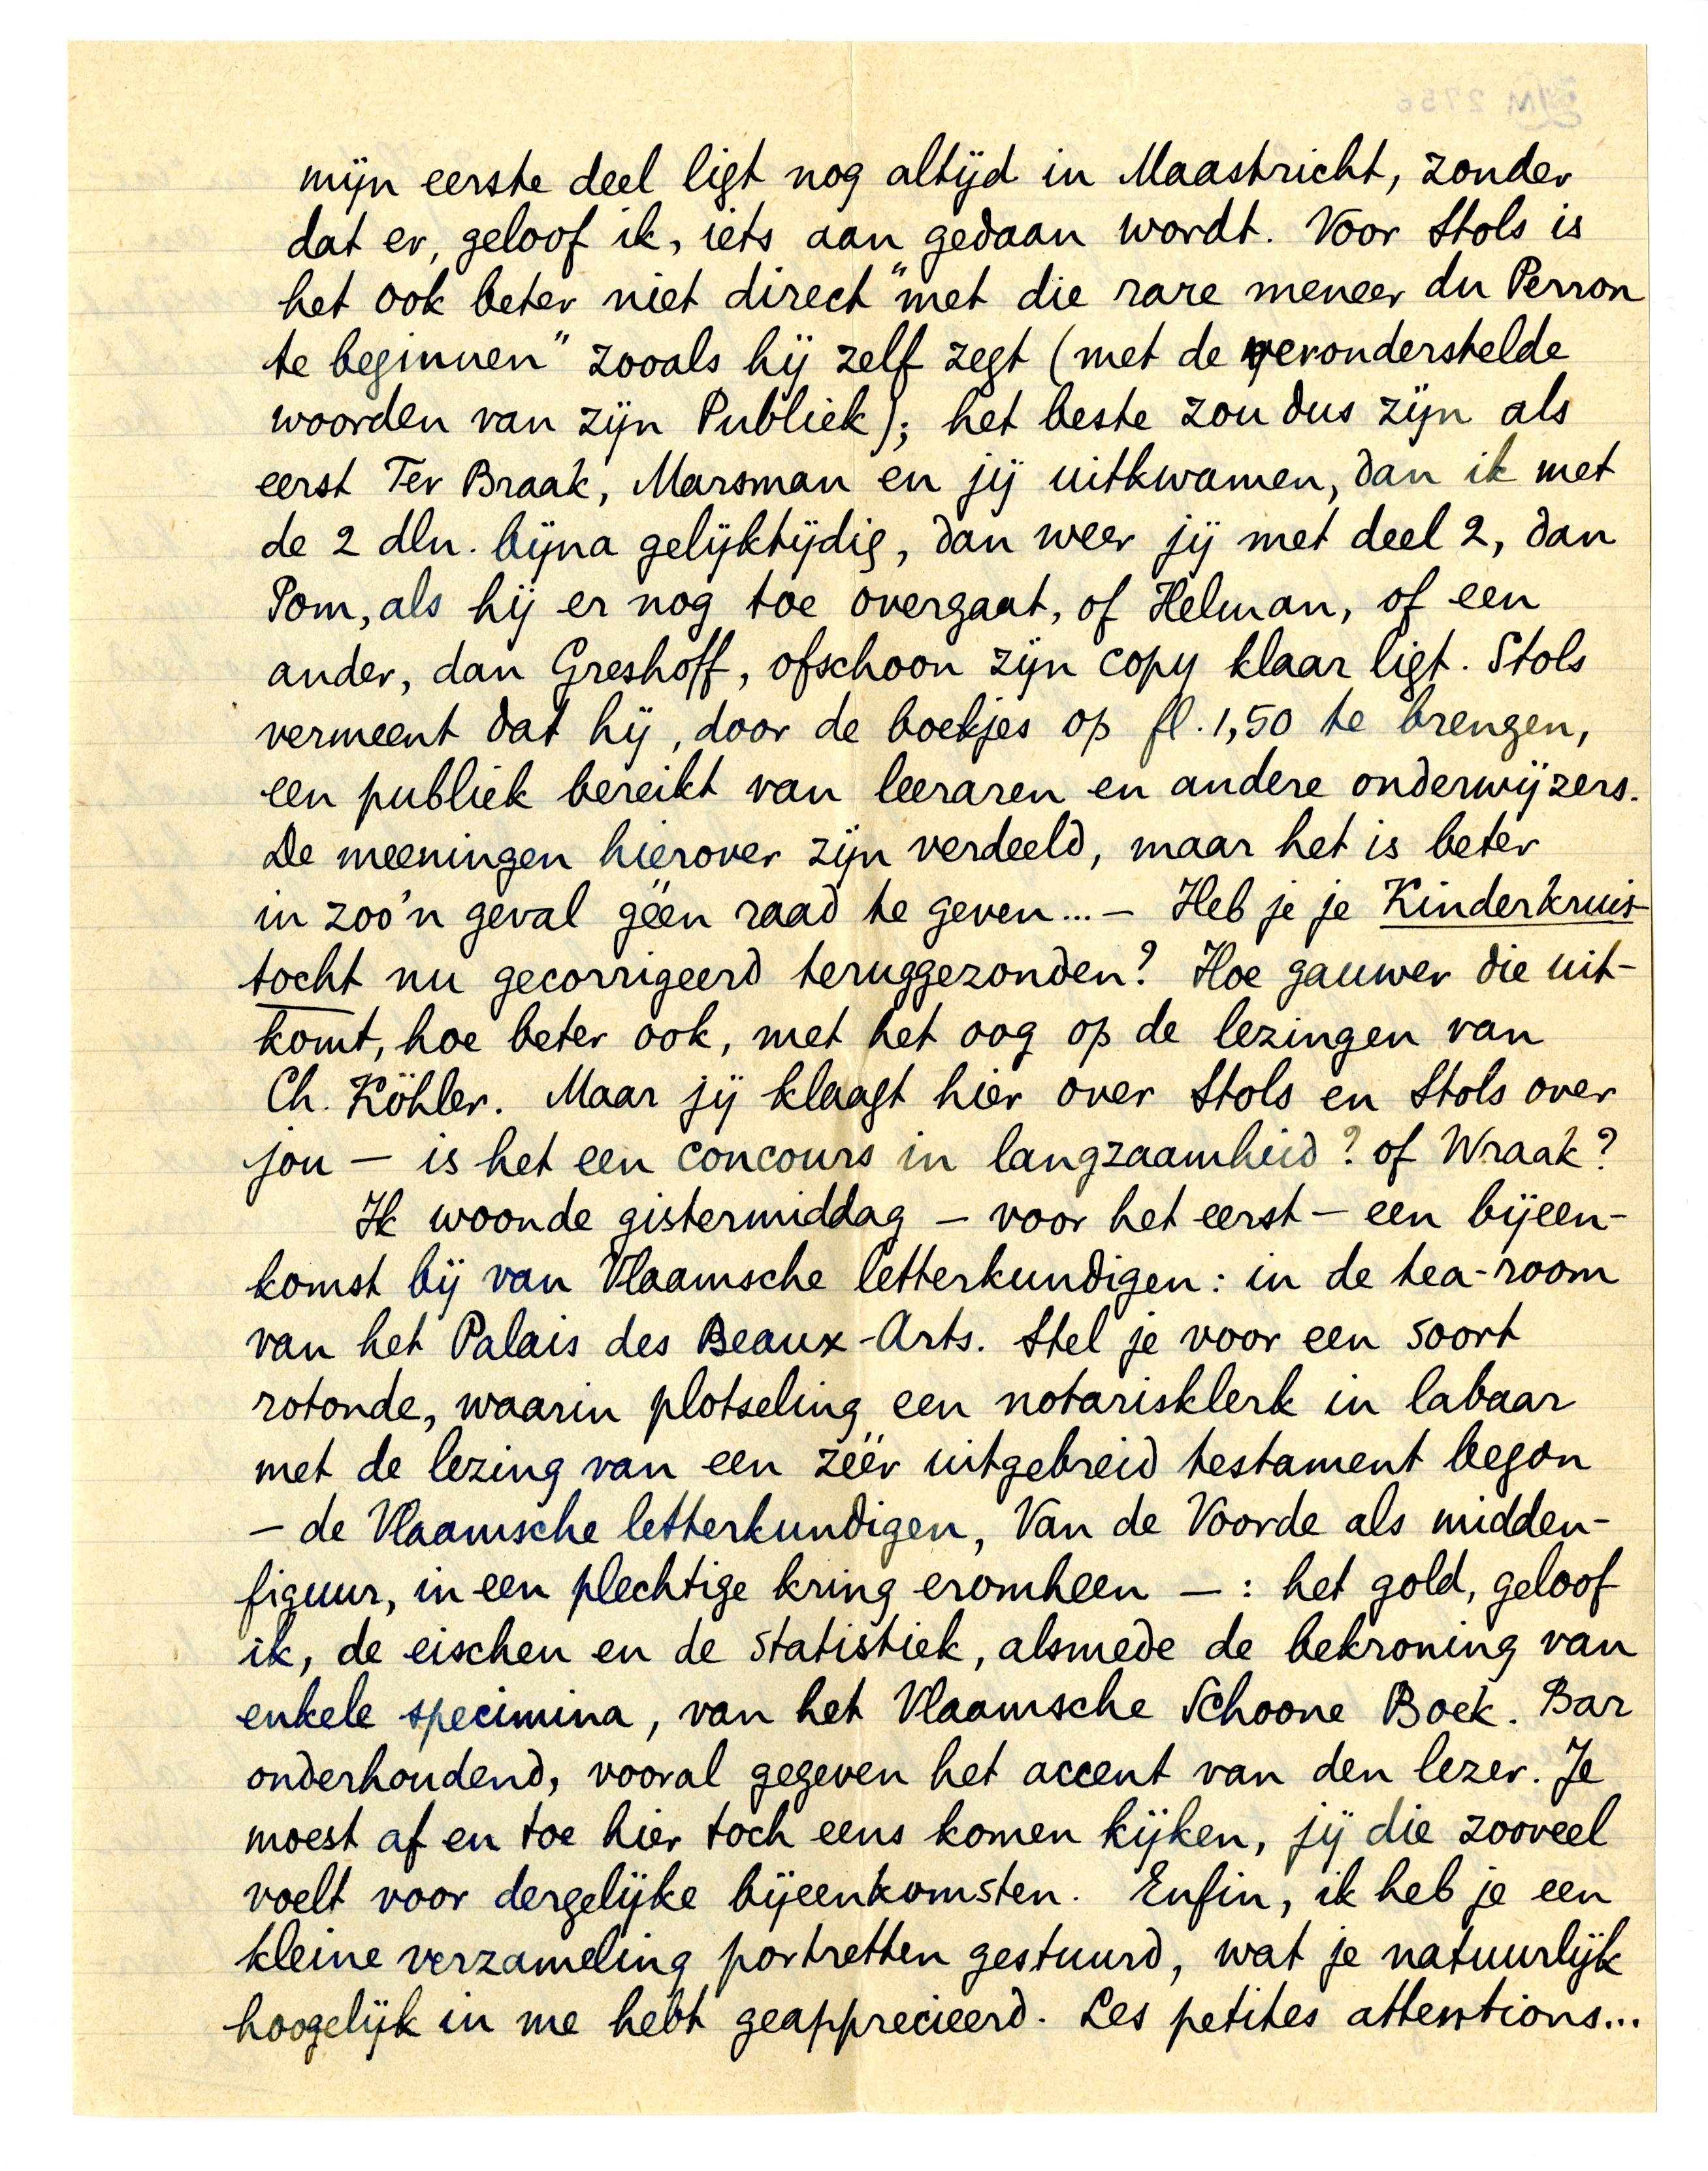 mijn eerste deel ligt nog altijd in Maastricht, zonder
dat er, geloof ik, iets aan gedaan wordt. Voor Stols is
het ook beter niet direct "met die rare meneer du Perron
te beginnen" zooals hij zelf zegt (met de veronderstelde
woorden van zijn Publiek); het beste zou dus zijn als
eerst Ter Braak, Marsman en jij uitkwamen, dan ik met
de 2 dln. bijna gelijktijdig, dan weer jij met deel 2, dan
Pom, als hij er nog toe overgaat, of Helman, of een
ander, dan Greshoff, ofschoon zijn copy klaar ligt. Stols
vermeent dat hij, door de boekjes op fl. 1,50 te brengen,
een publiek bereikt van leeraren en andere onderwijzers.
De meeningen hierover zijn verdeeld, maar het is beter
in zoo'n geval géén raad te geven... — Heb je je Kinderkruis-
tocht nu gecorrigeerd teruggezonden? Hoe gauwer die uit-
komt, hoe beter ook, met het oog op de lezingen van
Ch. Köhler. Maar jij klaagt hier over Stols en Stols over
jou — is het een concours in langzaamheid? of Wraak?
Ik woonde gistermiddag — voor het eerst — een bijeen-
komst bij van Vlaamsche letterkundigen: in de tea-room
van het Palais des Beaux-Arts. Stel je voor een soort
rotonde, waarin plotseling een notarisklerk in labaar
met de lezing van een zéér uitgebreid testament begon
— de Vlaamsche letterkundigen, Van de Voorde als midden-
figuur, in een plechtige kring eromheen — : het gold, geloof
ik, de eischen en de statistiek, alsmede de bekroning van
enkele specimina, van het Vlaamsche Schoone Boek. Bar
onderhoudend, vooral gegeven het accent van den lezer. Je
moest af en toe hier toch eens komen kijken, jij die zooveel
voelt voor dergelijke bijeenkomsten. Enfin, ik heb je een
kleine verzameling portretten gestuurd, wat je natuurlijk
hoogelijk in me hebt geapprecieerd. Les petites attentions...